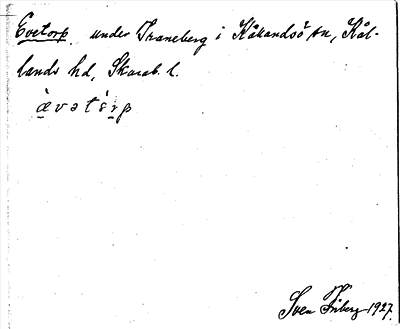 Evetorp under Traneberg i Kålandsö sn, Kål-
lands hd, Skarab. l.
ævətɷrp
Sven Friberg 1927.